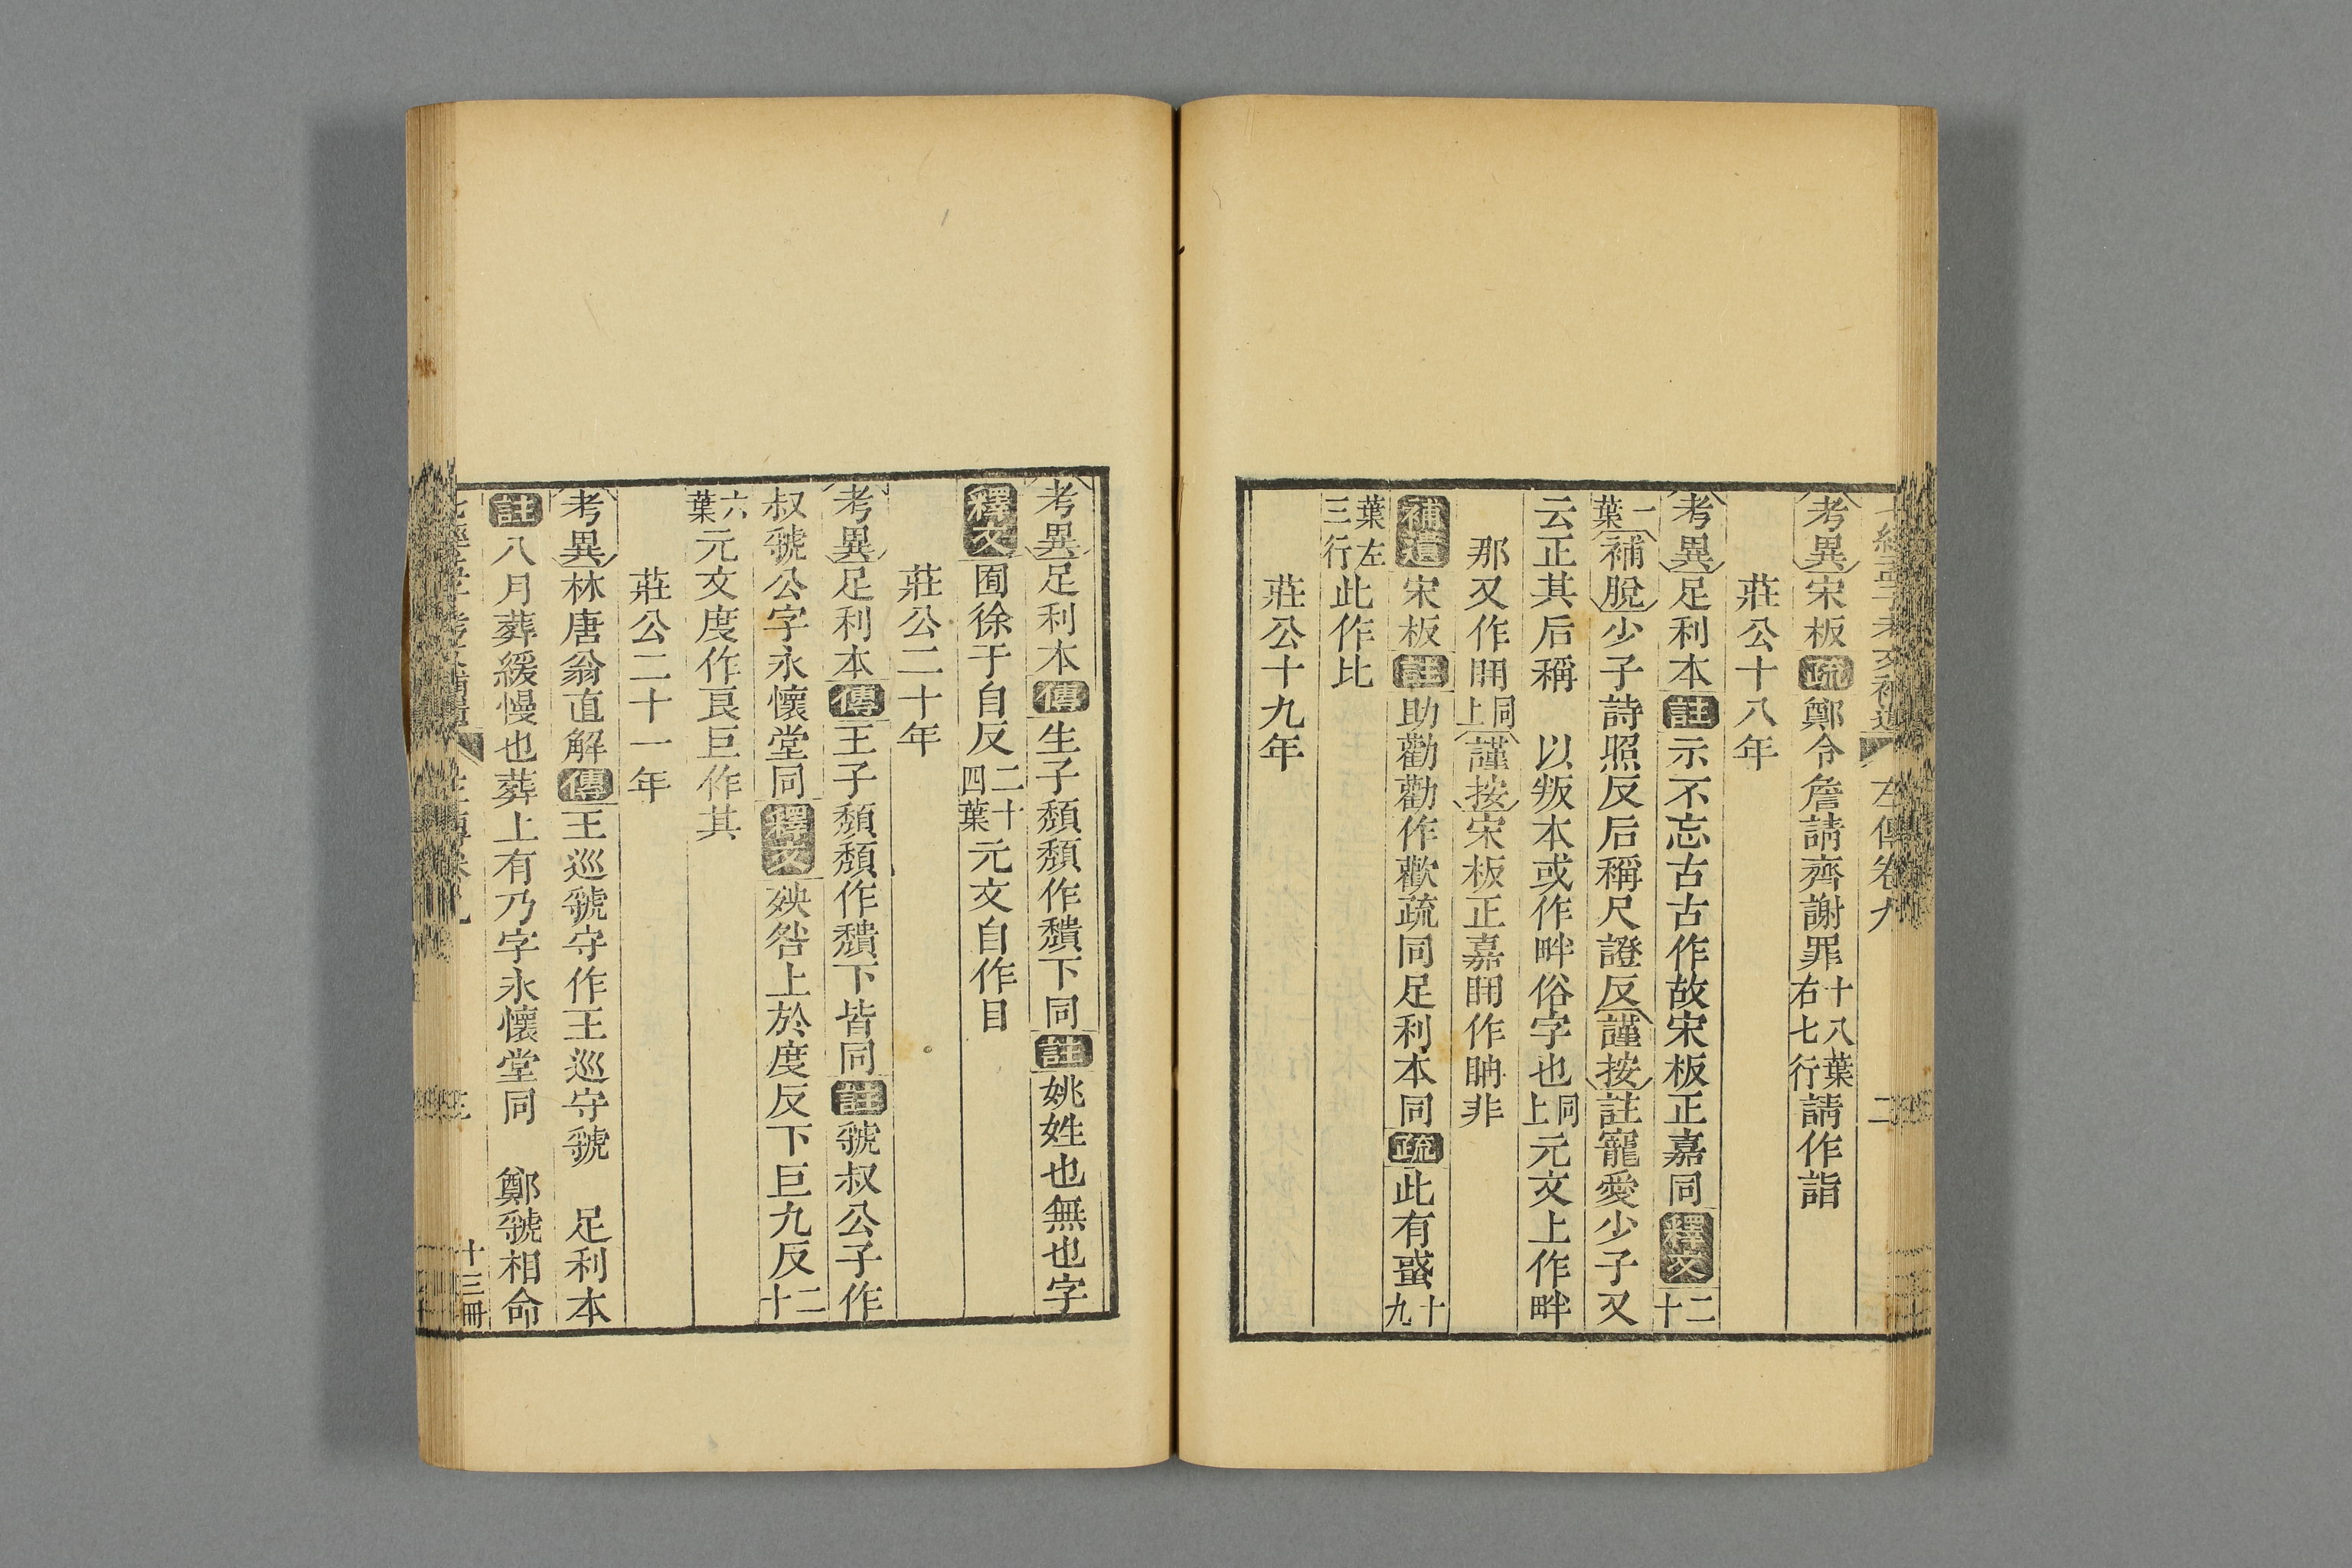 左傳卷九 二
考異宋板疏鄭令詹請齊謝罪十八葉右七行請作詣
莊公十八年
考異足利本註示不忘古古作故宋板正嘉同釋文二十
一葉補脫少子詩照反后稱尺證反謹按註寵愛少子又
云正其后稱 以叛本或作畔俗字也同上元文上作畔
那又作𨙻同上謹按宋板正嘉𨙻作𨚗非
補遺宋板註助勸勸作歡疏同足利本同疏此有蜮十九
葉左三行此作比
莊公十九年
考異足利本傳生子頹頹作穨下同註姚姓也無也字
釋文囿徐于自反二十四葉元文自作目
莊公二十年
考異足利本傳王子頹頹作穨下皆同註虢叔公子作
叔虢公字永懷堂同釋文殃咎上於度反下巨九反二十
六葉元文度作良巨作其
莊公二十一年
考異林唐翁直解傳王巡虢守作王巡守虢 足利本
註八月葬緩慢也葬上有乃字永懷堂同 鄭虢相命
三 十三冊